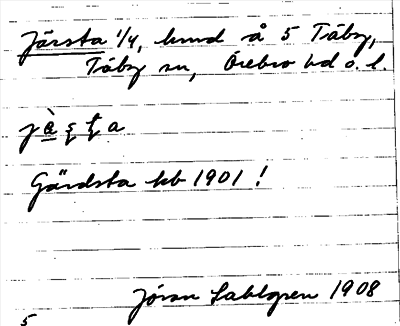 Järsta 1/4, hmd å 5 Täby,
Täby sn, Örebro hd o. l.
Gärdsta kb 1901 !
Jöran Sahlgren 1908
5